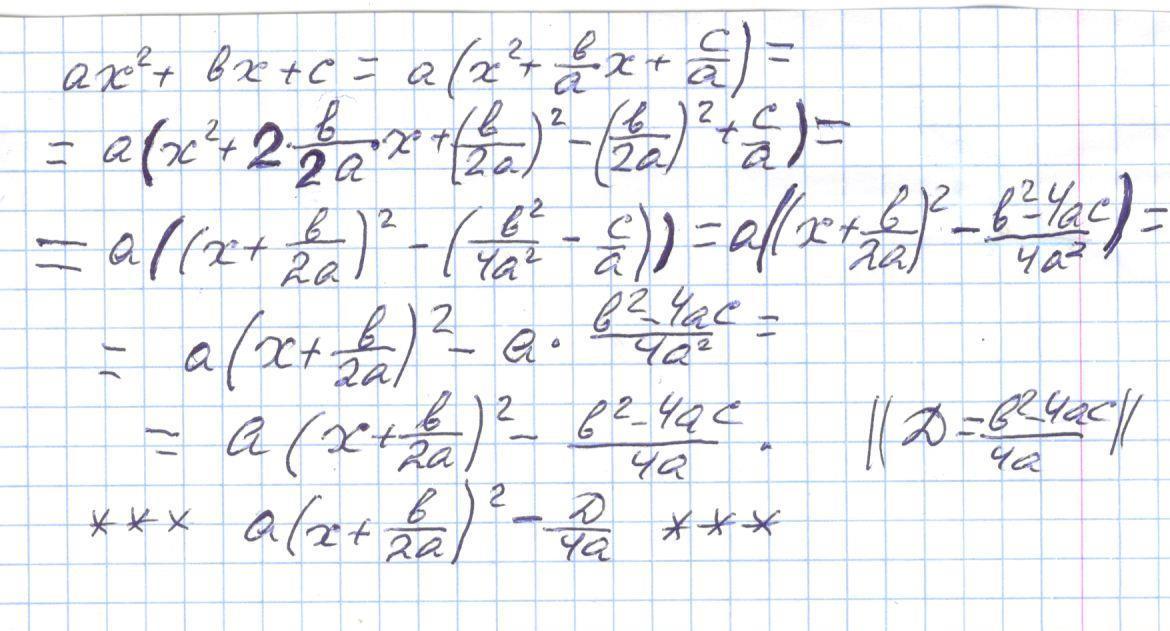 ax² + bx + c = a(x² + b/a x + c/a) =
= a(x² + 2·b/2a·x + (b/2a)² − (b/2a)² + c/a) =
= a((x + b/2a)² − (b²/4a² − c/a)) = a((x + b/2a)² − b²−4ac/4a²) =
= a(x + b/2a)² − a· b²−4ac/4a² =
= a(x + b/2a)² − b²−4ac/4a . ||D = b²−4ac/4a||
*** a(x + b/2a)² − D/4a ***